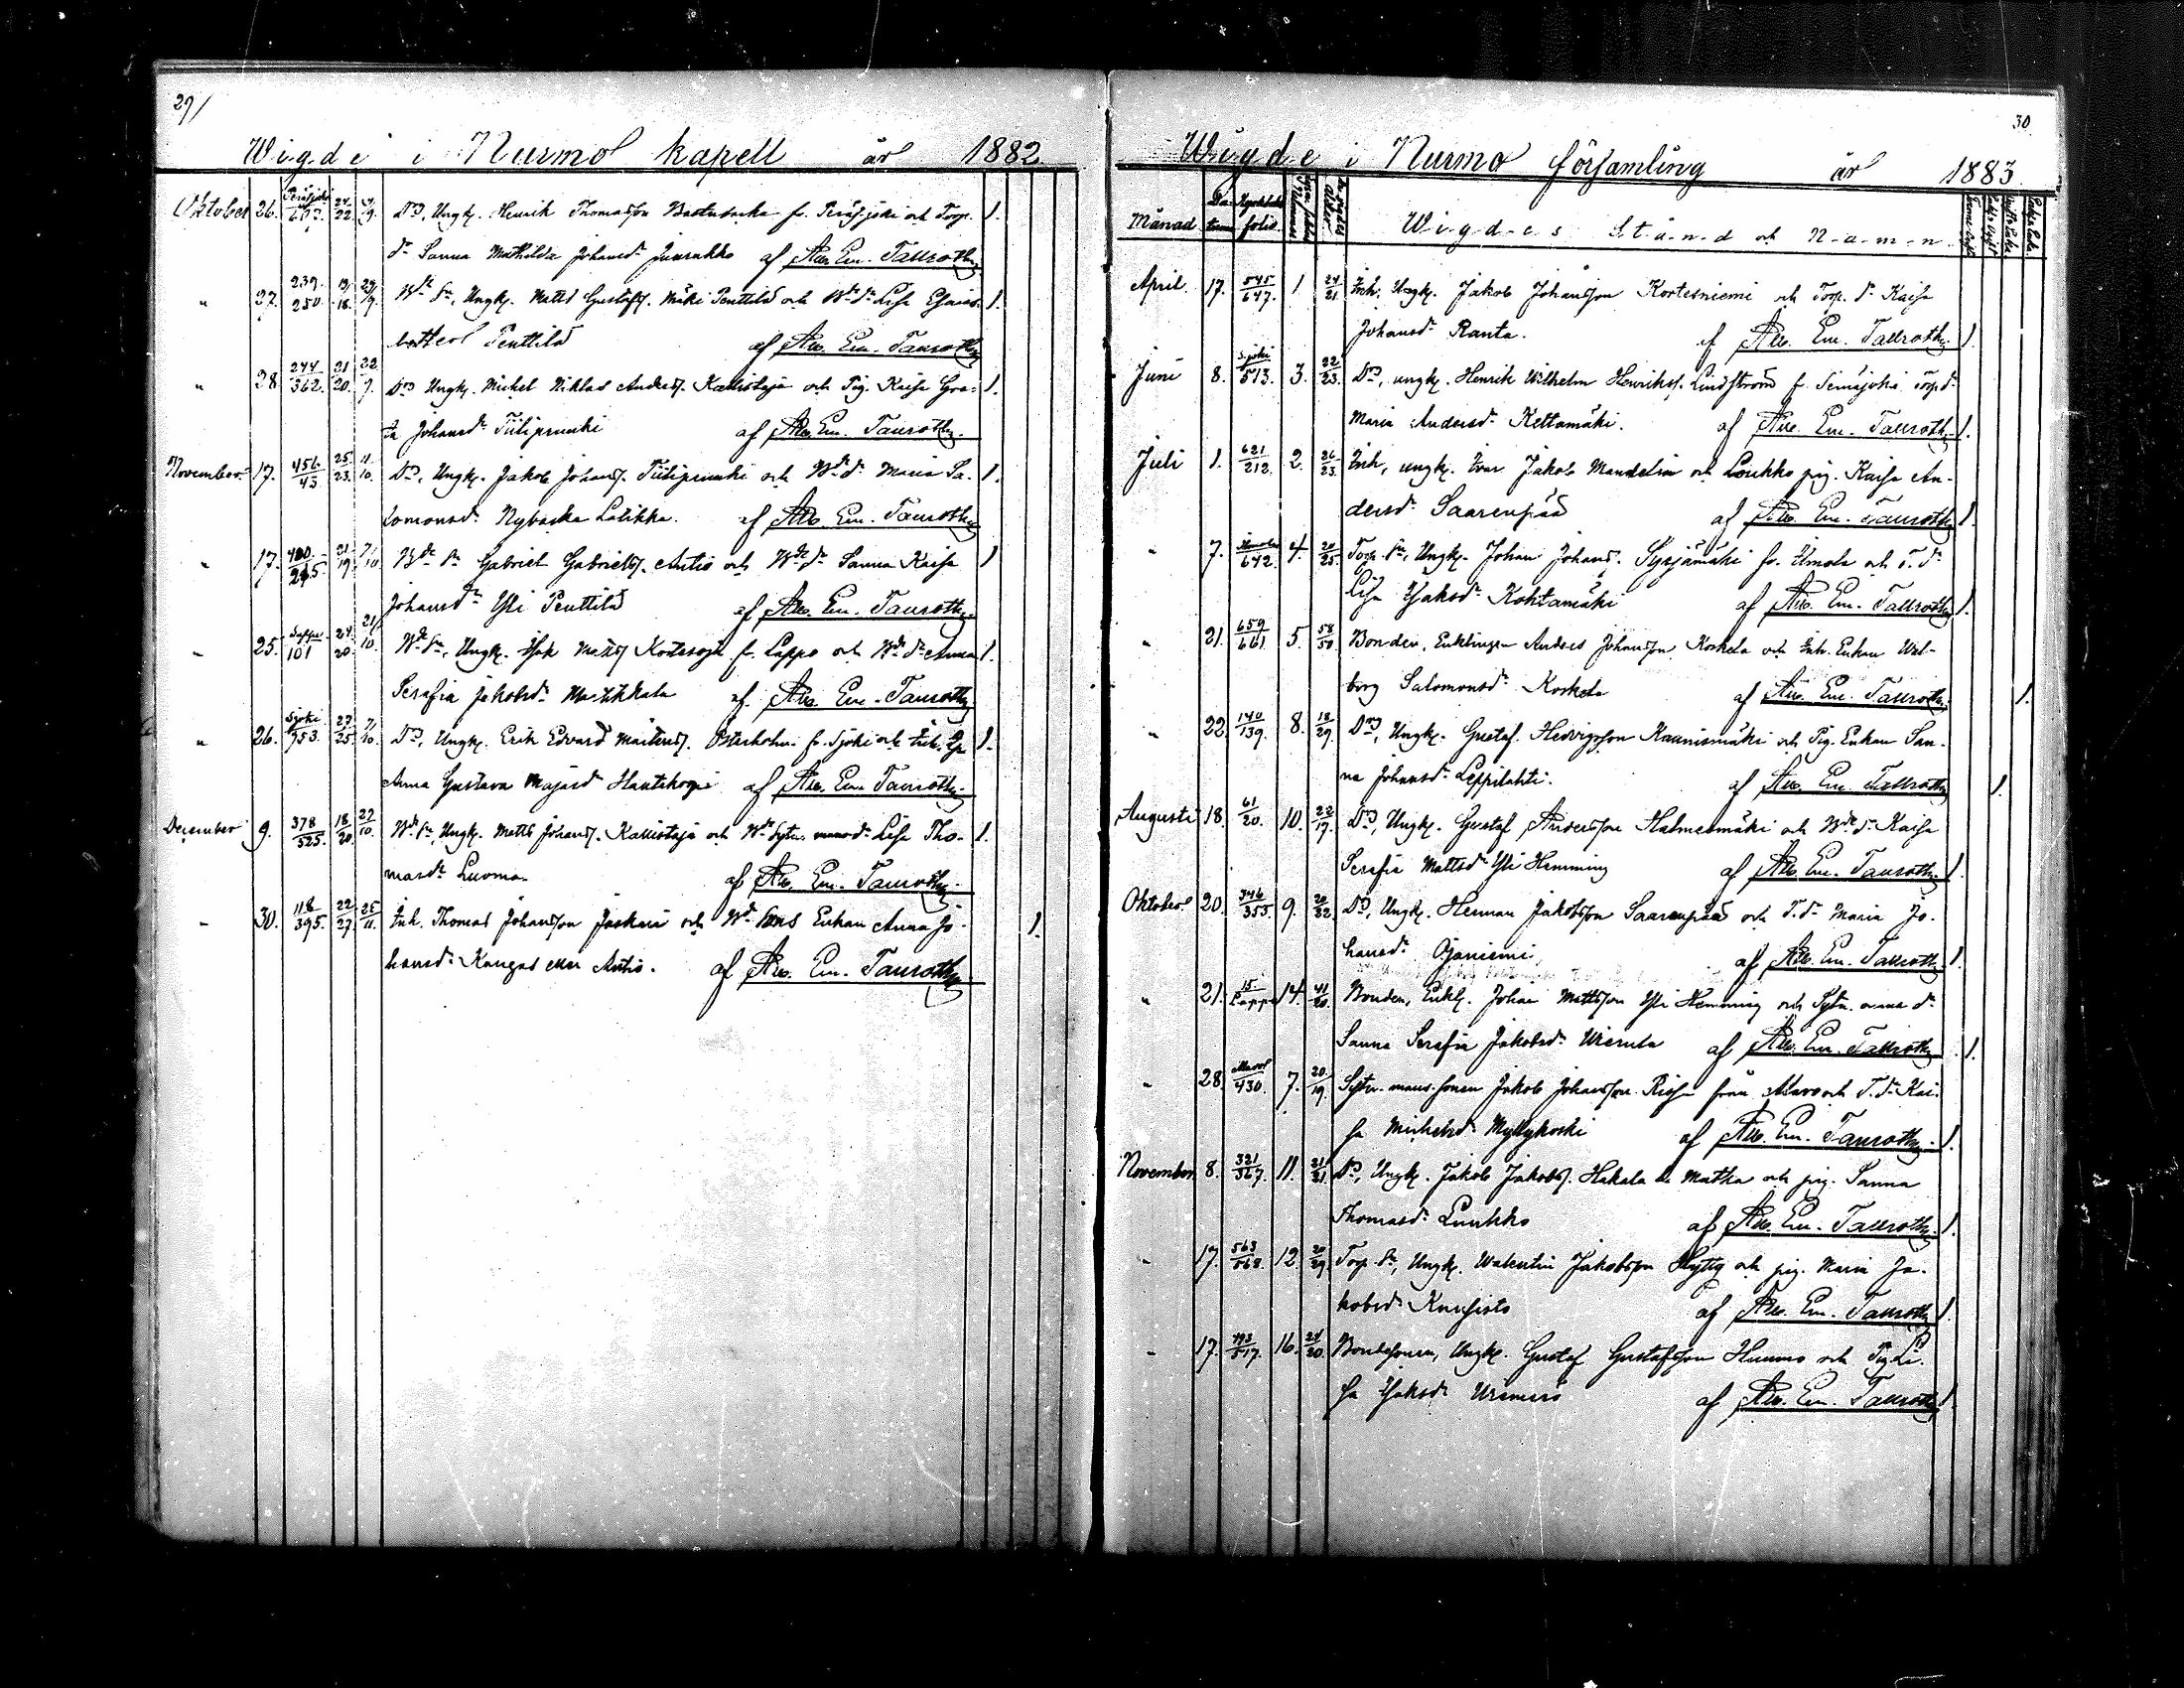 29/
Wigde i Nurmo kapell år 1882
Oktober 26. 24/22 Drg, Ungk. Henrik Thomasson fr. och Torp. 1.
dr Sanna Mathilda Johansdr Juurakko af Alb. Em. Tallroth
" 27. 239/250. 19/18. Bde sn, Ungk. Matts Gustafss. Mäki Penttilä och Bde dr Lisa Esaias- 1.
Penttilä af Alb. Em. Tallroth
" 28. 244/362. 21/20. 22/9. Drg Ungk. Michel Niklas Anderss. Kallistaja och Pig. Kaisa Gre- 1.
ta Johansdr Tiilipruukki af Alb. Em. Tallroth
November 17. 456/43 25/23. 11/10. Drg, Ungk. Jakob Johanss. Tiilipruukki och Bde dr Maria Sa- 1.
lomonsdr Nybacka Latikka. af Alb. Em. Tallroth
" 17. 21/19 7/10 Bde sn Gabriel Gabrielss. Antio och Bde dr Sanna Kaisa 1
Johansdr Yli Penttilä af Alb. Em. Tallroth
" 25. Lappo/101 24/20. 21/10. Bde sn, Ungk. Isak Mattss fr. Lappo och Bde dr Anna 1.
Serafia Jakobsdr af Alb. Em. Tallroth
" 26. Sjoki/753. 27/25. 7/10. Drg, Ungk. Erik Edvard Mårtenss. Österholm fr. Sjoki och Inh. 1.
Anna Gustava Majasdr Hautakorpi af Alb. Em. Tallroth
December 9. 378/525. 18/20. 27/10. Bde sn, Ungk. Matts Johanss. Kallistaja och Bde Sytn. mans dr Lisa Tho- 1.
masdr Luoma. af Alb. Em. Tallroth
" 30. 118/395. 22/27. 25/11. Inh. Thomas Johansson Jaskari och Bde sons Enkan Anna Jo- 1.
hansdr Kangas eller Antio. af Alb. Em. Tallroth
30
Wigde i Nurmo församling år 1883.
Månad Datum Kyrkboks folio. Wigdes Stånd och Namn
April. 17. 545/647. 1 24/21. Inh. Ungk. Jakob Johansson Kortesniemi och Torp. dr Kaisa
Johansdr Ranta. af Alb. Em. Tallroth 1.
Juni 8. Sjoki/513. 3. 22/23. Drg, ungk. Henrik Wilhelm Henrikss. Lindström f. Seinäjoki Torp dr
Maria Andersdr Kettamäki. af Alb. Em. Tallroth 1.
Juli 1. 621/212. 2. 26/23. Inh, ungk. Ivar Jakob Mandelin och Loukko pig. Kaisa An-
dersdr Saarenpää af Alb. Em. Tallroth 1.
" 7. Ilmola/642. 4. 20/25. Torp. sn, Ungk. Johan Johanss. Syrjämäki fr. Ilmola och T. dr
Lisa Isaksdr Kohtamäki af Alb. Em. Tallroth 1.
" 21. 659/661. 5. 58/50 Bonden, Enklingen Anders Johansson Koskela och Inh. Enkan Wal-
borg Salomonsdr Koskela af Alb. Em. Tallroth 1.
" 22. 140/139. 8. 18/29. Drg, Ungk. Gustaf Hedvigsson Kaunismäki och Pig. Enkan San-
na Johansdr Leppilahti. af Alb. Em. Tallroth 1.
Augusti 18. 61/20. 10. 22/17. Drg, Ungk. Gustaf Andersson Halmesmäki och Bde dr Kaisa
Serafia Mattsdr Yli Hemming af Alb. Em. Tallroth 1.
Oktober 20. 346/355. 9. 20/32 Drg, Ungk. Herman Jakobsson Saarenpää och T. dr Maria Jo-
hansdr Ojaniemi af Alb. Em. Tallroth 1.
" 21. 15/Lappo 14. 41/20. Bonden, Enkl. Johan Mattsson Yli Hemming och Sytn. mans dr
Sanna Serafia Jakobsdr Wierula af Alb. Em. Tallroth 1.
" 28. Alavo/430. 7. 20/19. Sytn. mans sonen Jakob Johansson från Alavo och T. dr Kai-
sa Michelsdr Myllykoski af Alb. Em. Tallroth 1.
November 8. 321/367. 11. 21/21. Drg, Ungk. Jakob Jakobss. Hakala l. Matka och pig. Sanna
Thomasdr Luukko af Alb. Em. Tallroth 1.
" 17. 563/568. 12. 20/29. Torp. sn, Ungk. Walentin Jakobsson och pig. Maria Ja-
kobsdr af Alb. Em. Tallroth 1.
" 17. 16. 24/20. Bondesonen, Ungk. Gustaf Gustafsson och Pig. Li-
sa Isaksdr af Alb. Em. Tallroth 1.